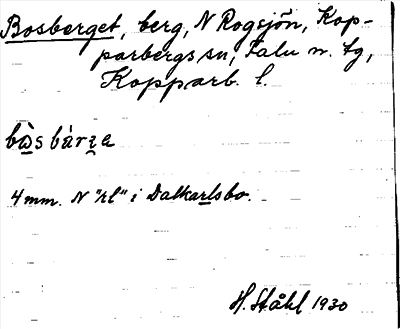 Bosberget, berg, N Rogsjön, Kop-
parbergs sn, Falu n. tg,
Kopparb. l.
bὰsbárza
4 mm. N "rl" i Dalkarlsbo.
H. Ståhl 1930